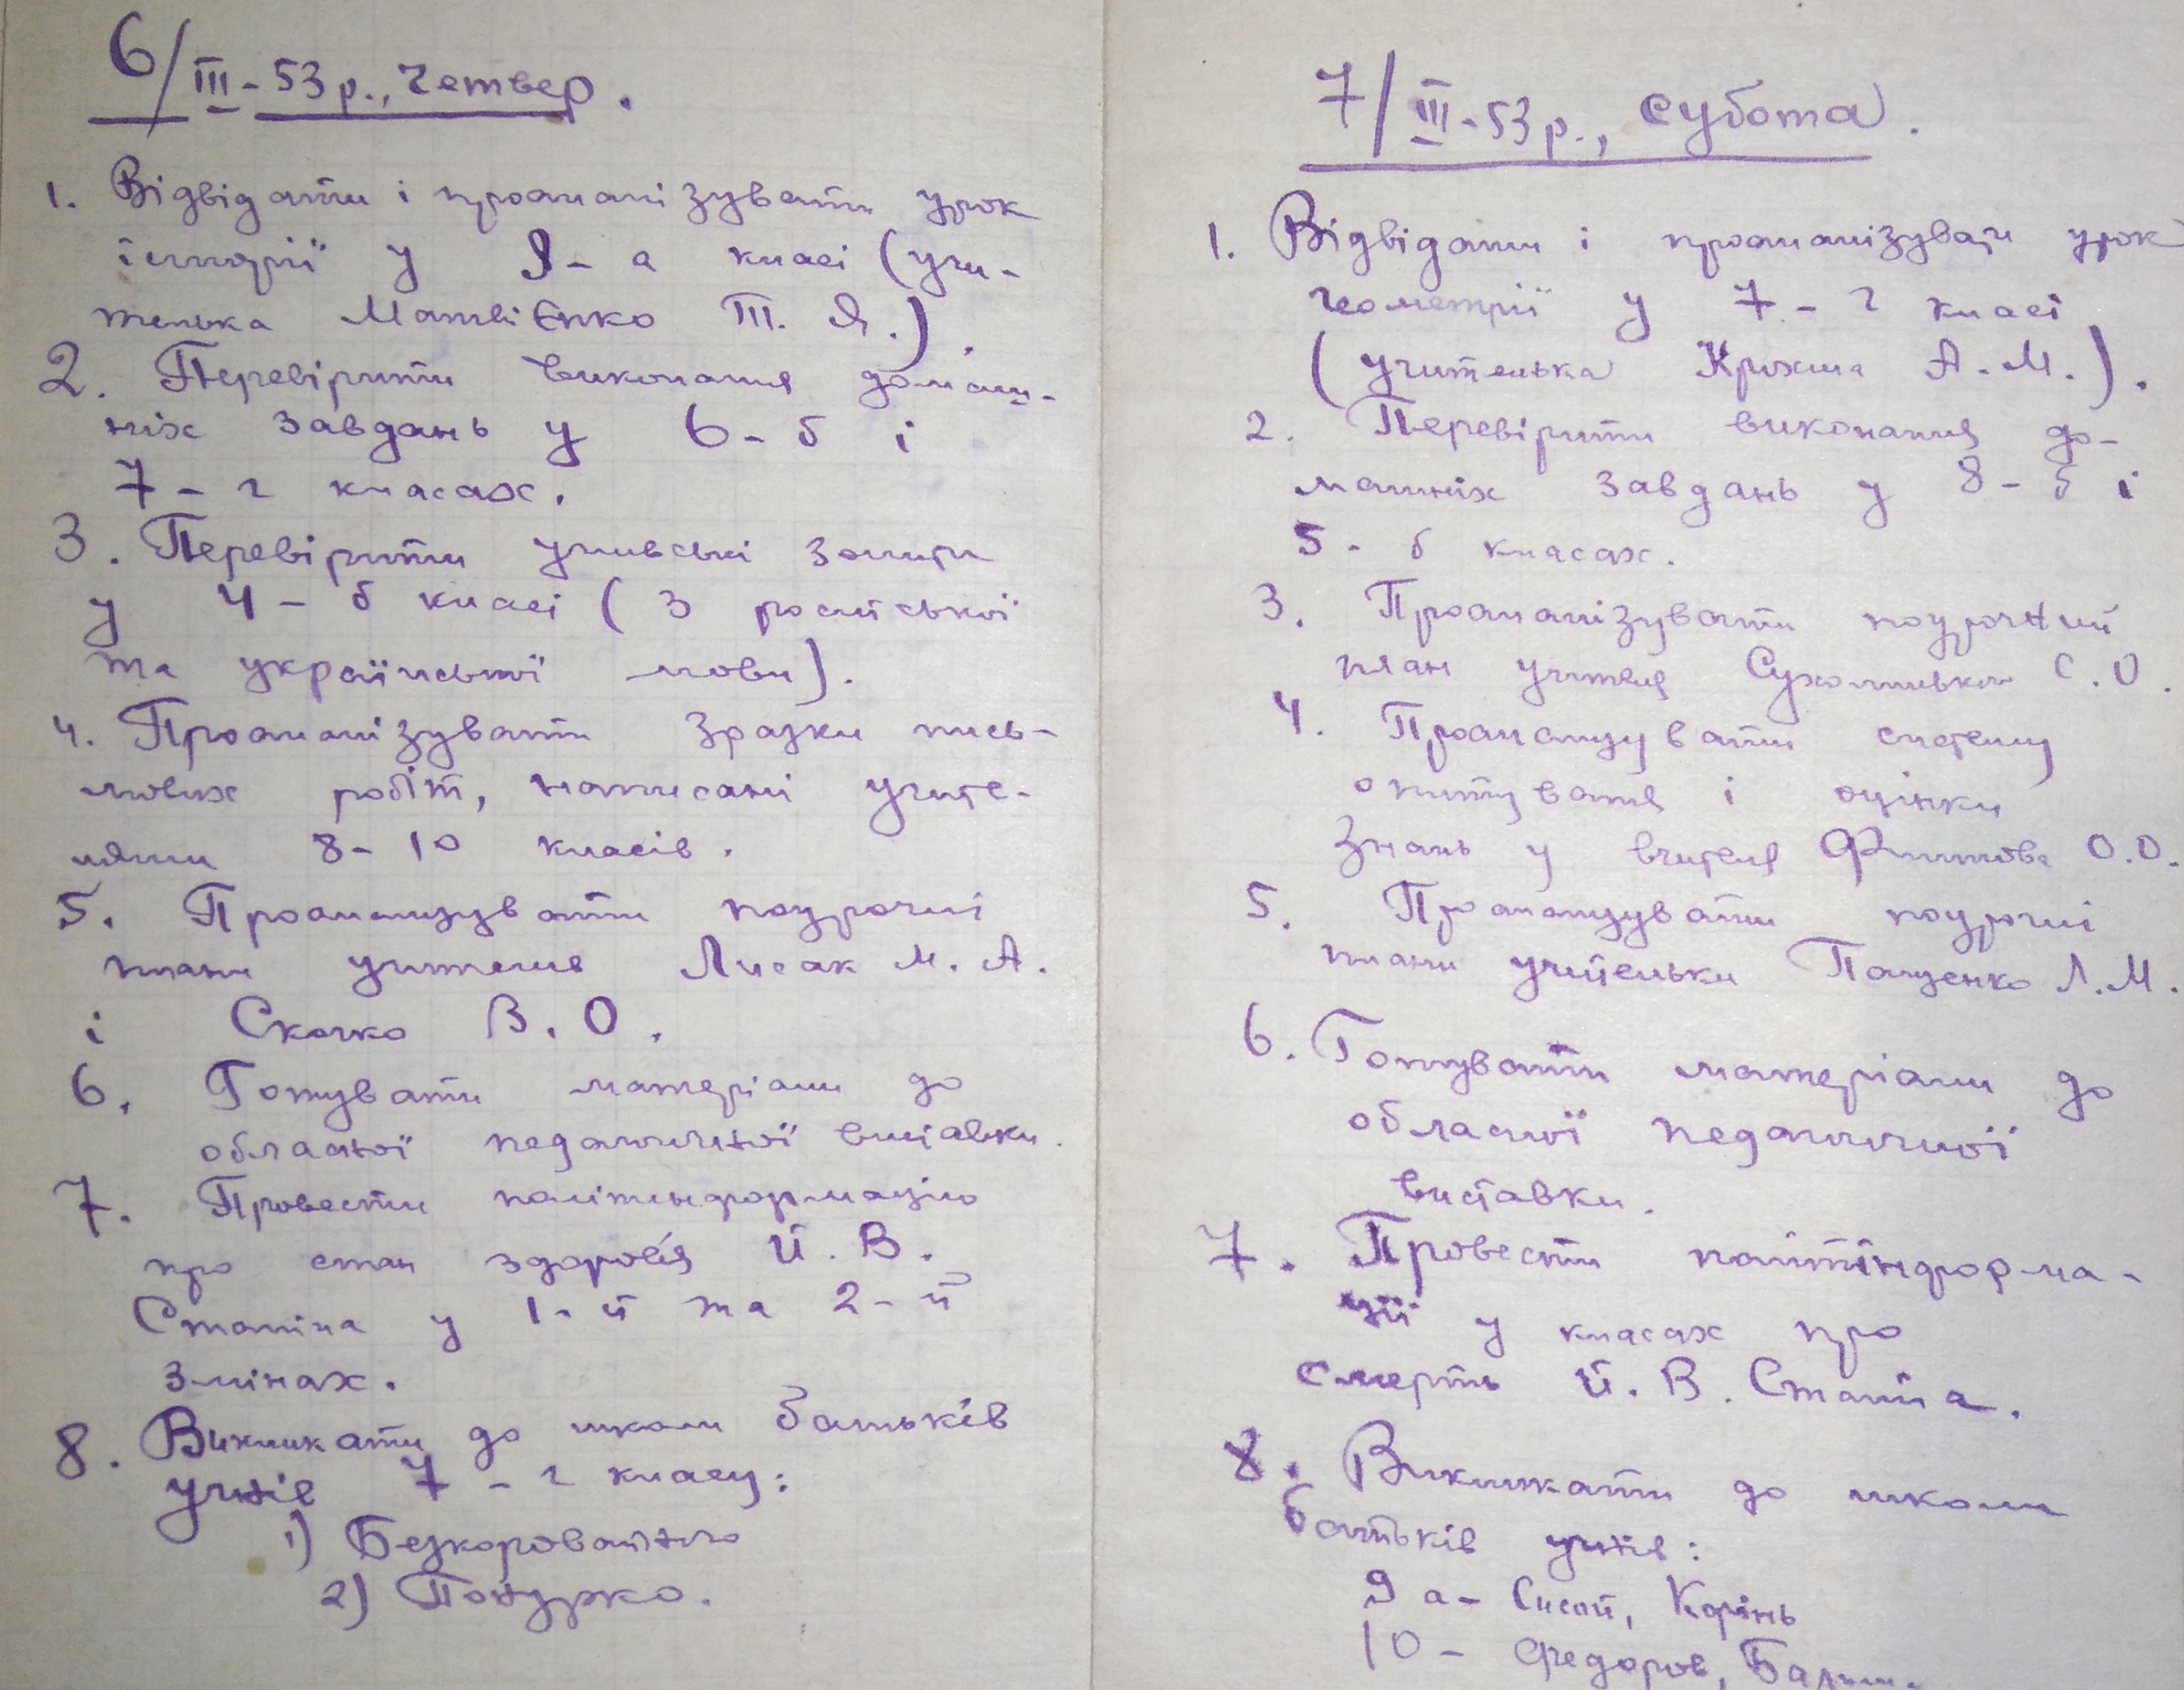 6/III-53 р., Четвер.
1. Відвідати і проаналізувати урок
історії у 9-а класі (учи-
телька Матвієнко Т. Я.).
2. Перевірити виконання домаш-
ніх завдань у 6-б і
7-г класах.
3. Перевірити учнівські зошити
у 4-б класі (з російської
та української мови).
4. Проаналізувати зразки пись-
мових робіт, написані учите-
лями 8-10 класів.
5. Проаналізувати поурочні
плани учителів Лисак М. А.
і Скочко В. О.
6. Готувати матеріали до
обласної педагогічної виставки.
7. Провести політінформацію
про стан здоров'я Й. В.
Сталіна у 1-й та 2-й
змінах.
8. Викликати до школи батьків
учнів 7-г класу:
1) Безкоровайного
2) Понурко.
7/III-53 р., субота.
1. Відвідати і проаналізувати урок
геометрії у 7-г класі
(учителька А. М.).
2. Перевірити виконання до-
машніх завдань у 8-б і
5-б класах.
3. Проаналізувати поурочний
план учителя С. О.
4. Проаналізувати систему
опитування і оцінки
знань у вчителя О. О.
5. Проаналізувати поурочні
плани учительки Пащенко Л. М.
6. Готувати матеріали до
обласної педагогічної
виставки.
7. Провести політінформа-
ції у класах про
смерть Й. В. Сталіна.
8. Викликати до школи
батьків учнів:
9а- Корінь
10- Федоров,